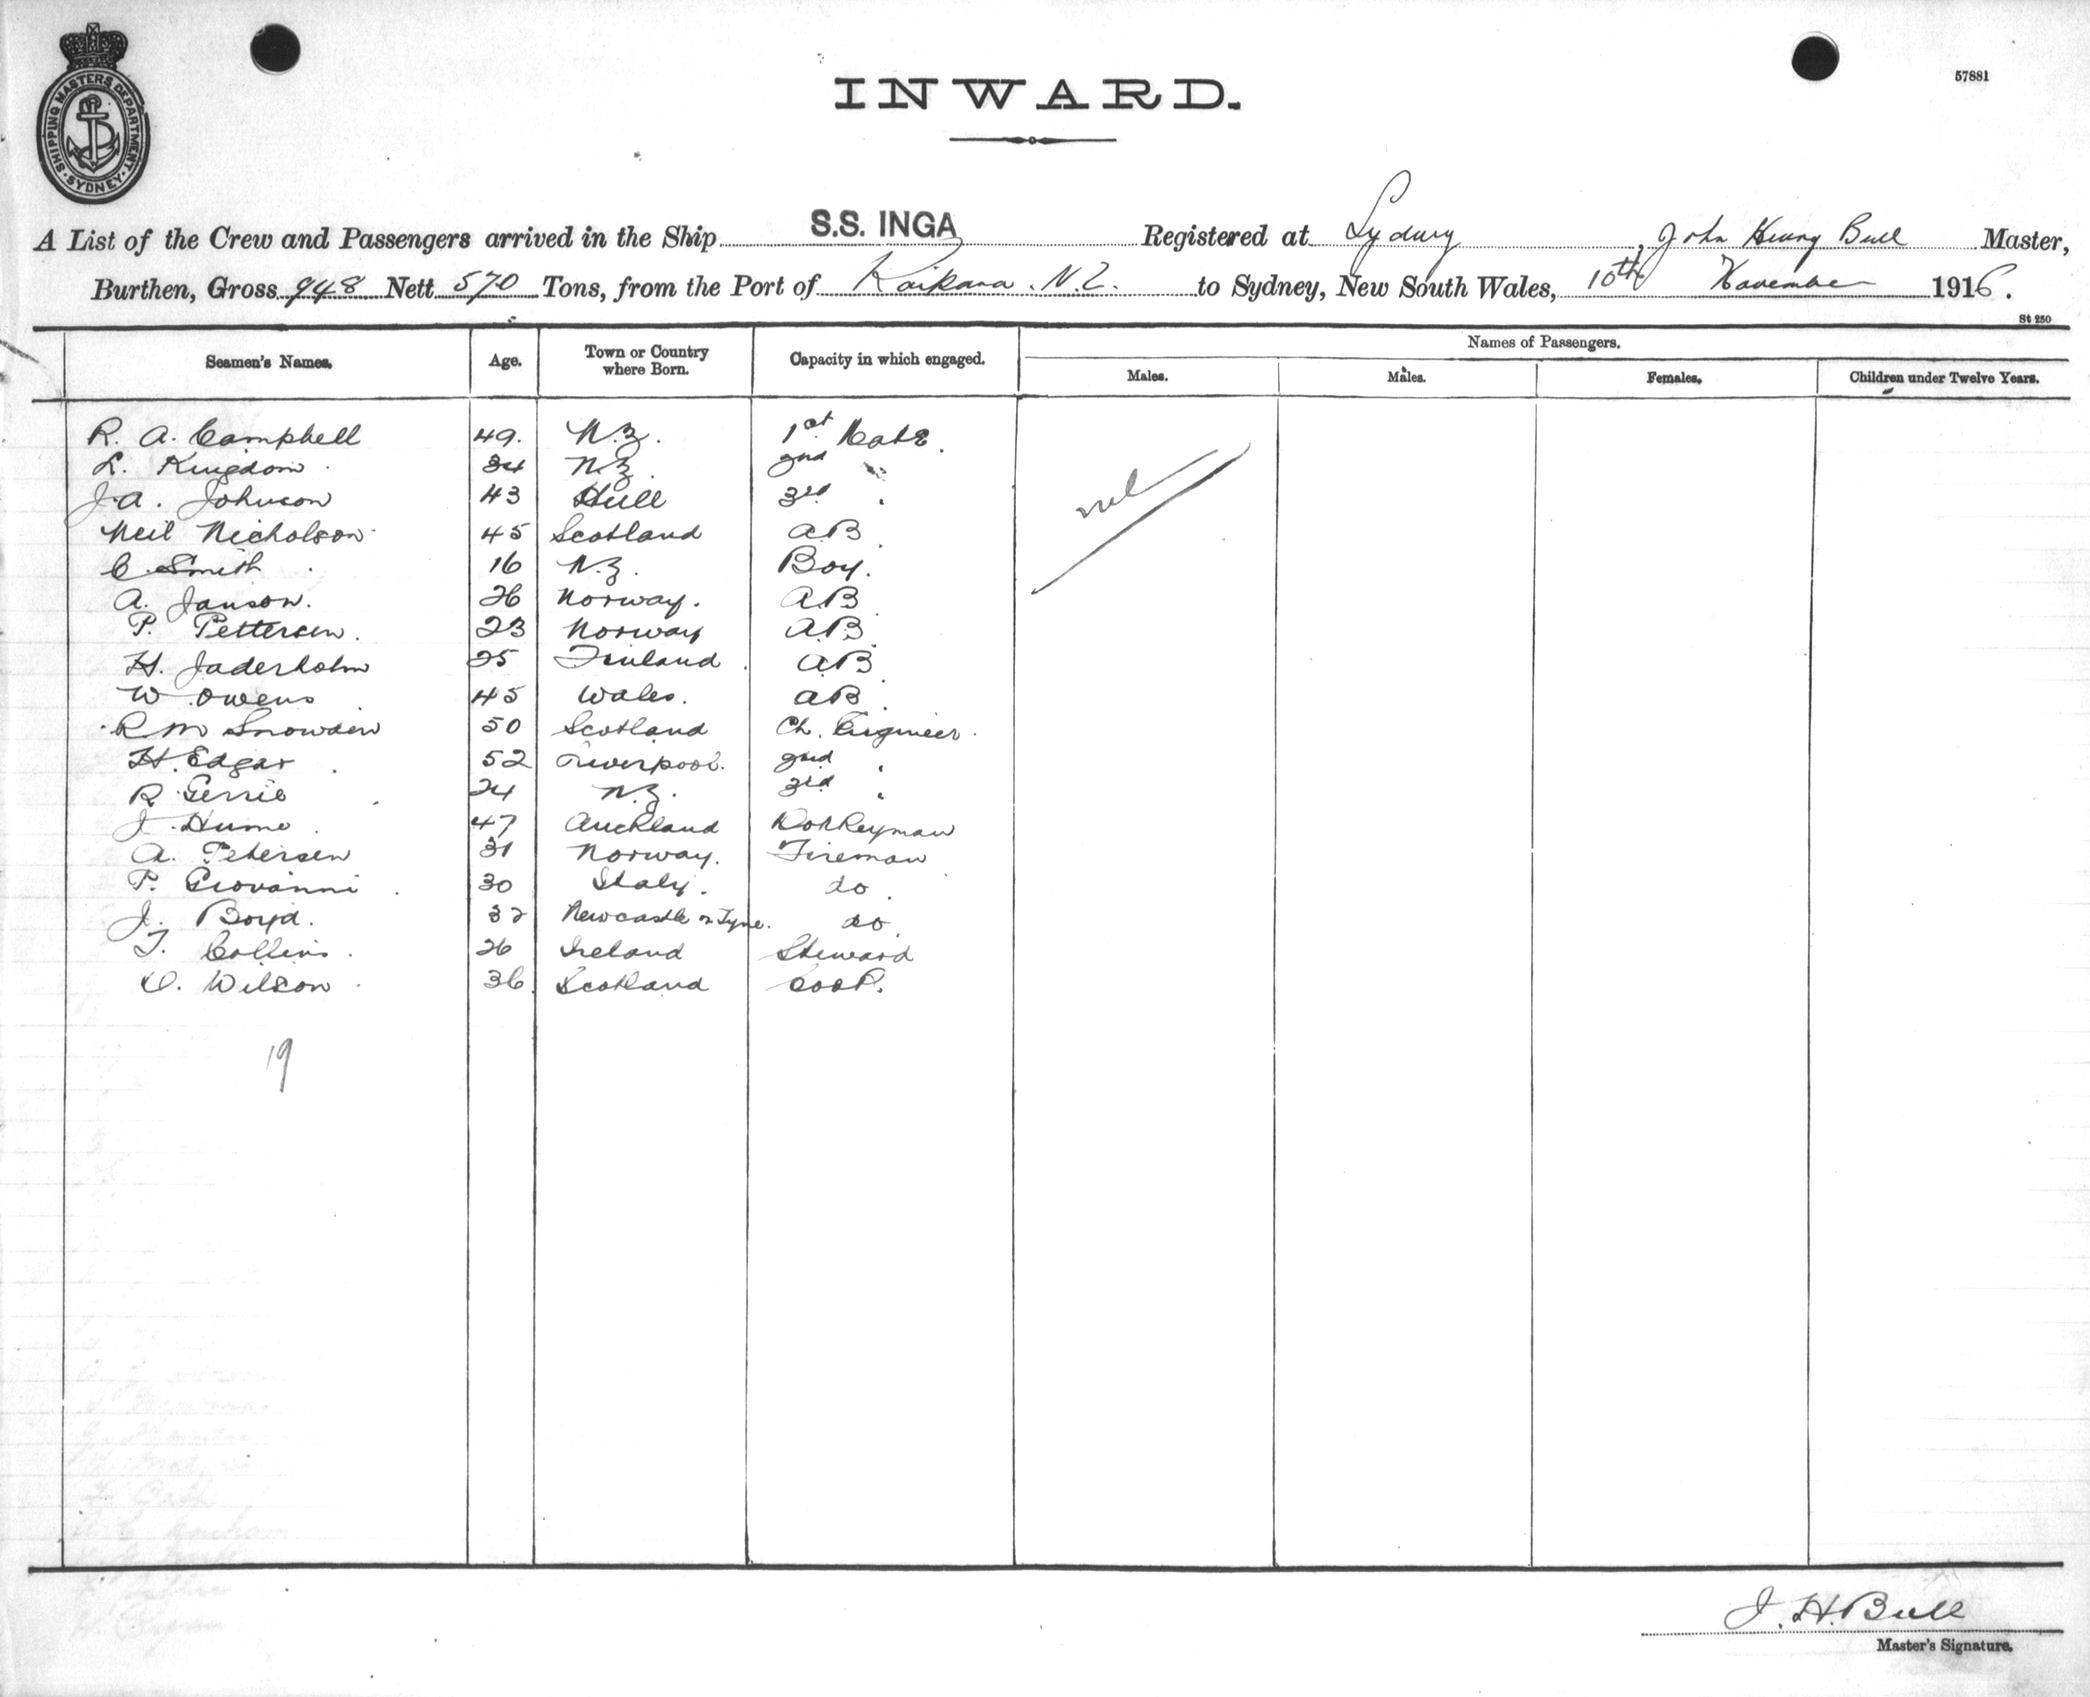 SHIPPING MASTERS DEPARTMENT. SYDNEY.
57881
INWARD.
A List of the Crew and Passengers arrived in the Ship S.S. INGA Registered at Sydney, John Henry Bull Master,
Burthen, Gross 948 Nett 570 Tons, from the Port of N.Z. to Sydney, New South Wales, 10th November 1916.
St 250
Seamen's Names. Age. Town or Country where Born. Capacity in which engaged. Names of Passengers.
Males. Males. Females. Children under Twelve Years.
R. A. Campbell 49. N.Z. 1st Mate.
L. Kingdom 34 N.Z 2nd "
J.A. Johnson 43 Hull 3rd "
Neil Nicholson 45 Scotland A.B.
C. Smith 16 N.Z. Boy.
A. Janson. 26 Norway. A.B.
P. Pettersen. 23 Norway A.B.
H. Jaderholm 25 Finland A.B.
W Owens 45 Wales. A.B.
R M Snowden 50 Scotland Ch. Engineer.
H. Edgar 52 Liverpool. 2nd "
R. Gerrie 24 N.Z. 3rd "
J. Hume 47 Auckland Donkeyman
A. Petersen 31 Norway. Fireman
P. Giovanni 30 Italy. do
J. Boyd. 32 Newcastle on Tyne. do
T. Collins. 26 Ireland Steward
D. Wilson 36 Scotland Cook.
nil
19
J. H. Bull
Master's Signature.